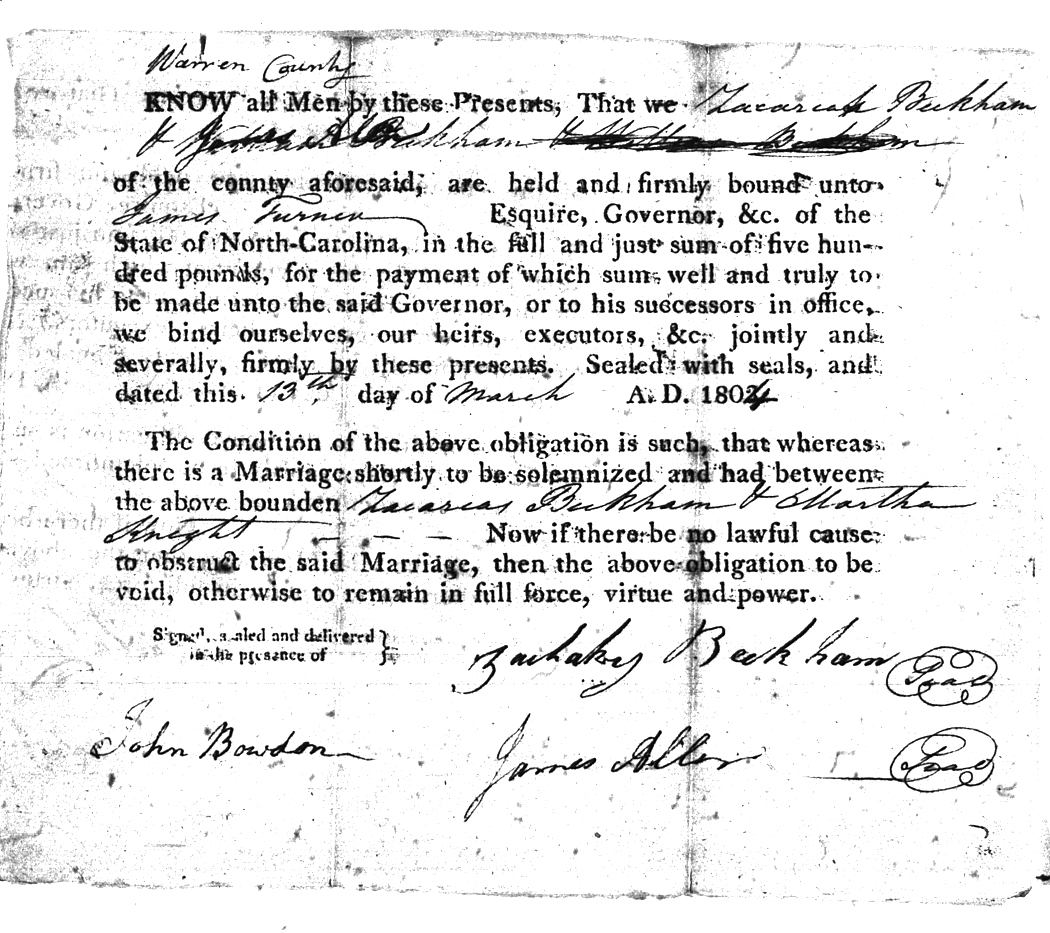 Warren County
KNOW all Men by these Presents, That we Zacariah Beckham
& James Allen Beckham
of the county aforesaid, are held and firmly bound unto
James Turner Esquire, Governor, &c. of the
State of North-Carolina, in the full and just sum of five hun-
dred pounds, for the payment of which sum well and truly to
be made unto the said Governor, or to his successors in office,
we bind ourselves, our heirs, executors, &c. jointly and
severally, firmly by these presents. Sealed with seals, and
dated this 13th day of March A. D. 1804
The Condition of the above obligation is such, that whereas
there is a Marriage shortly to be solemnized and had between
the above bounden Zacarias Beckham & Martha
Knight - - - Now if there be no lawful cause
to obstruct the said Marriage, then the above obligation to be
void, otherwise to remain in full force, virtue and power.
Signed, sealed and delivered
in the presence of
Zachakey Beckham Seal
John Bowdon
James Allen Seal